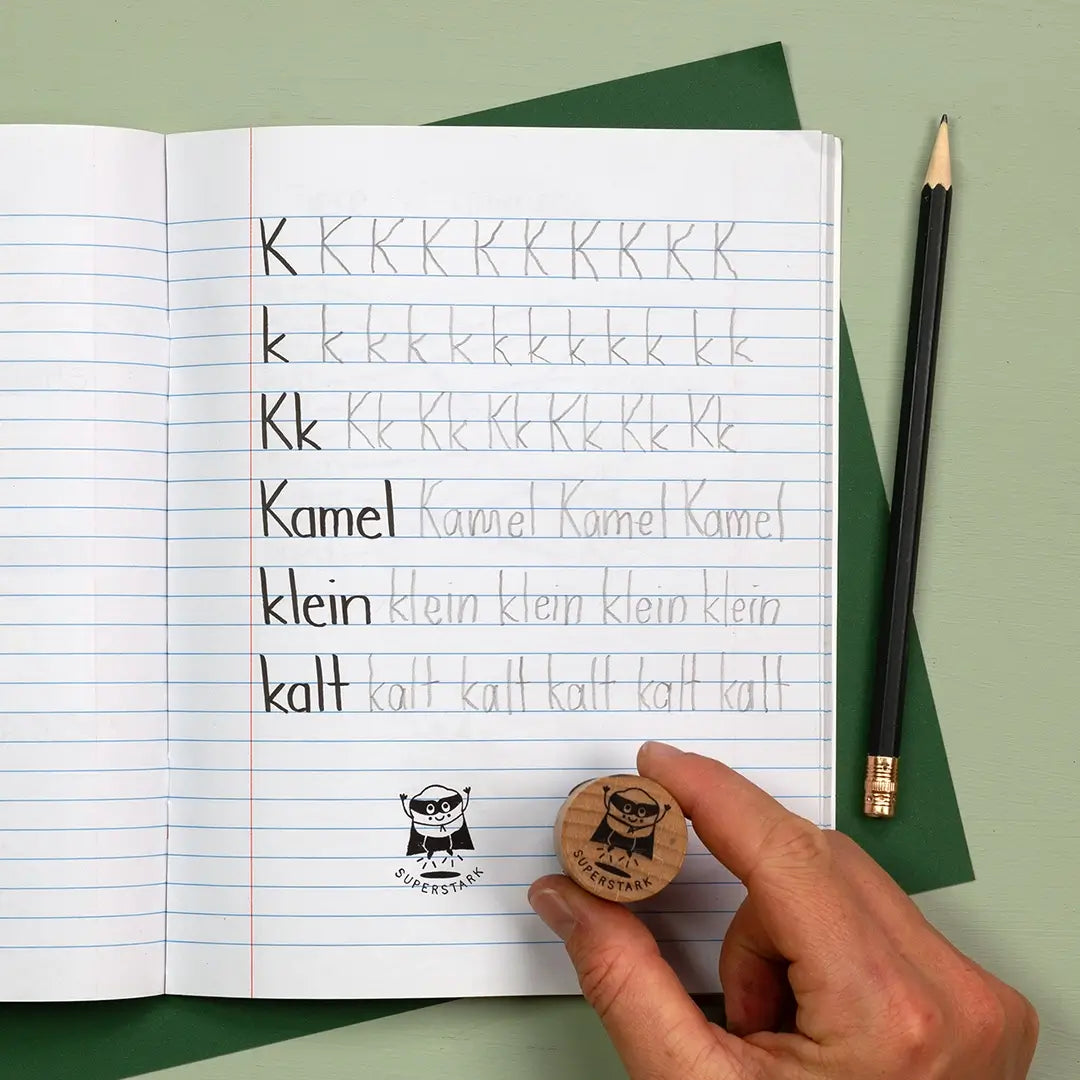 K K K K K K K K K K
k k k k k k k k k k k k
Kk Kk Kk Kk Kk Kk Kk
Kamel Kamel Kamel Kamel
klein klein klein klein klein
kalt kalt kalt kalt kalt kalt
SUPERSTARK
SUPERSTARK